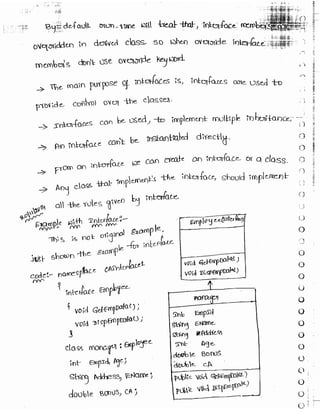 By default own-time will treat that, interface members
overridden in derived class. so when override interface
member's don't use override keyword.
-> The main purpose of interfaces is, interfaces are used to
provide control over the classes.
-> Interfaces can be used, to implement multiple inheritance.
-> An interface can't be instantiated directly.
-> From an interface we can create an interface or a class.
-> Any class that implement's the interface, should implement
all the rules given by interface.
Example with Interface:-
This is not original Example,
just shown the Example for interface
code:- namespace CAInterface1
{ interface Employee
{ void GetEmpData();
void DispEmpData();
}
class manager : Employee
int Empid, Age;
string Address, EName;
double Bonus, CA;
Employee
void GetEmpData()
void DispEmpData()
manager
int Empid
string EName
string Address
int Age
double Bonus
double CA
public void GetEmpData()
public void DispEmpData()